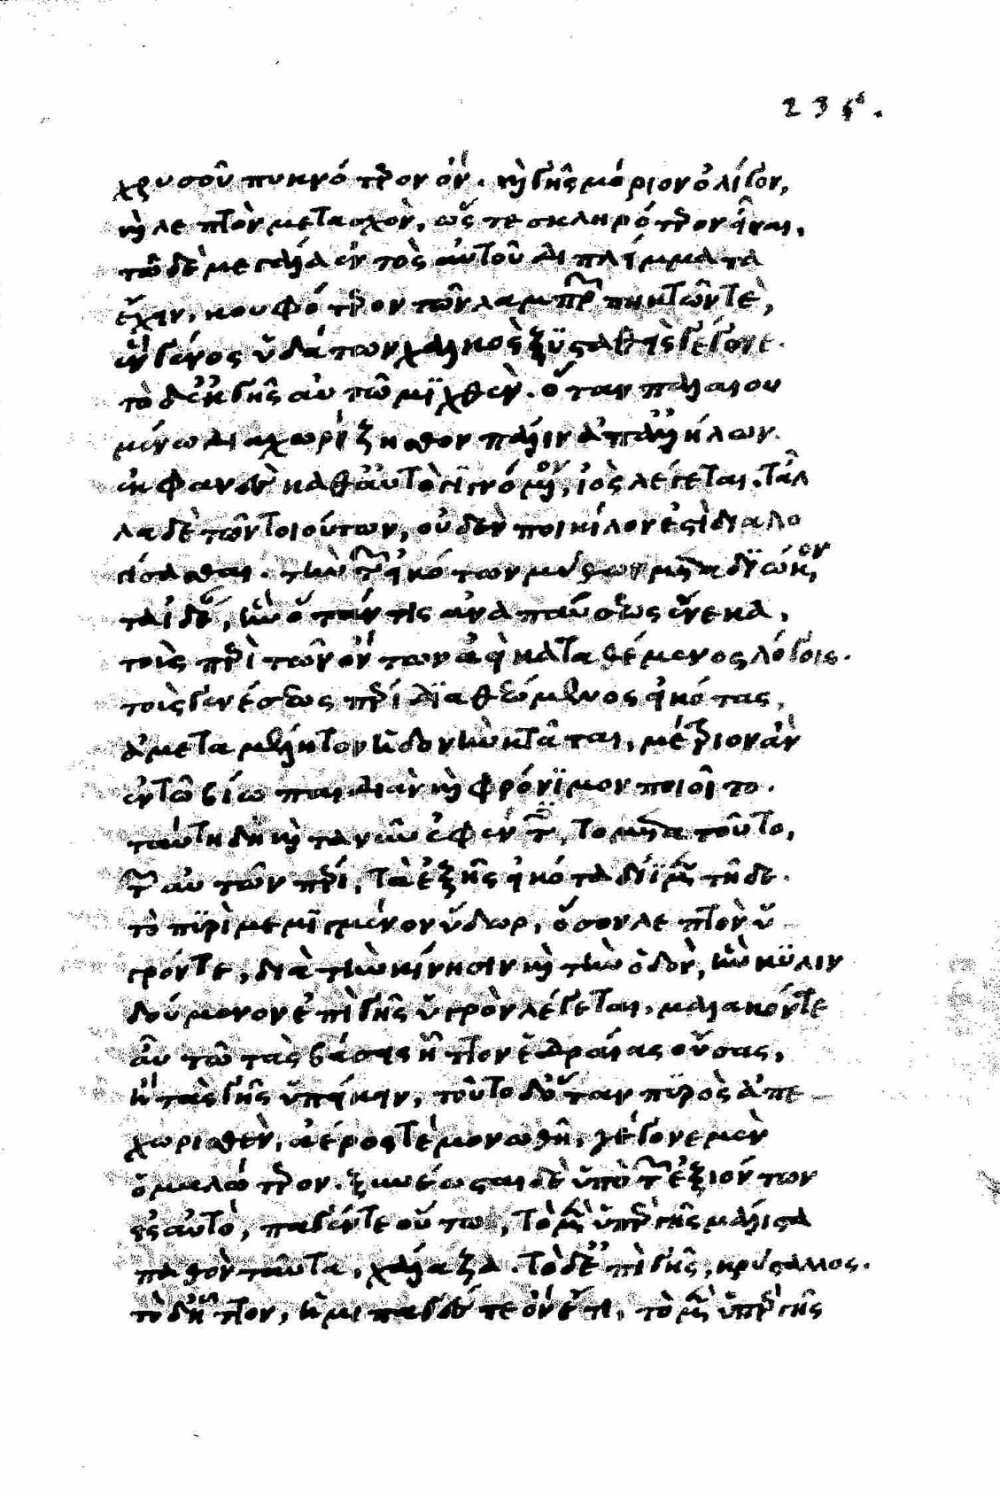 235.
χρυσοῦ πυκνότερον ὄν. καὶ γῆς μόριον ὀλίγον,
καὶ λεπτὸν μετασχὸν, ὥστε σκληρότερον εἶναι.
τῶ δὲ μεγάλα ἐντὸς αὑτοῦ διαλείμματα
ἔχειν, κουφότερον τῶν λαμπρῶν πηκτῶν τὲ,
ἓν γένος ὑδάτων χαλκὸς ξυσταθεὶς γέγονε.
τὸ δ' ἐκ γῆς αὐτῶ μιχθὲν. ὅταν παλαιου
μένω διαχωρίζησθον πάλιν ἀπ' ἀλλήλων.
ἐκφανὲς καθ' αὑτὸ γιγνόμενον, ἰὸς λέγεται. τἆλ
λα δὲ τῶν τοιούτων, οὐδὲν ποικίλον ἔτι διαλο
γίσασθαι. τὴν τῶν εἰκότων μύθων μεταδιώκον
τα ἰδέαν, ἣν ὅταν τις ἀναπαύσεως ἕνεκα,
τοὺς περὶ τῶν ὄντων ἀεὶ καταθέμενος λόγους.
τοὺς γενέσεως περὶ διαθεώμενος εἰκότας,
ἀμεταμέλητον ἡδονὴν κτᾶται, μέτριον ἂν
ἐν τῶ βίω παιδιὰν καὶ φρόνιμον ποιοῖτο.
ταύτη δὴ καὶ τανῦν ἐφέντες, τὸ μετὰ τοῦτο,
τῶν αὐτῶν πέρι, τὰ ἑξῆς εἰκότα δίιμεν τῆδε.
τὸ πυρὶ μεμιγμένον ὕδωρ, ὅσον λεπτὸν ὑ
γρόν τε, διὰ τὴν κίνησιν καὶ τὴν ὁδὸν, ἣν κυλιν
δούμενον ἐπὶ γῆς ὑγρὸν λέγεται. μαλακόν τε
αὖ τῶ τὰς βάσεις ἧττον ἑδραίας οὔσας,
ἢ τὰς γῆς ὑπείκειν, τοῦτο δ' ὅταν πυρὸς ἀπο
χωρισθὲν, ἀέρος τὲ μονωθῆ, γέγονε μὲν
ὁμαλώτερον. ξυνέωσται δὲ ὑπὸ τῶν ἐξιόντων
εἰς αὑτὸ, παγέν τε οὕτω, τὸ μὲν ὑπὲρ γῆς μάλιστα
παθὸν ταῦτα, χάλαζα. τὸ δ' ἐπὶ γῆς, κρύσταλλος.
τὸ δὲ ἧττον, ἡμιπαγές τε ὂν ἔτι, τὸ μὲν ὑπὲρ γῆς